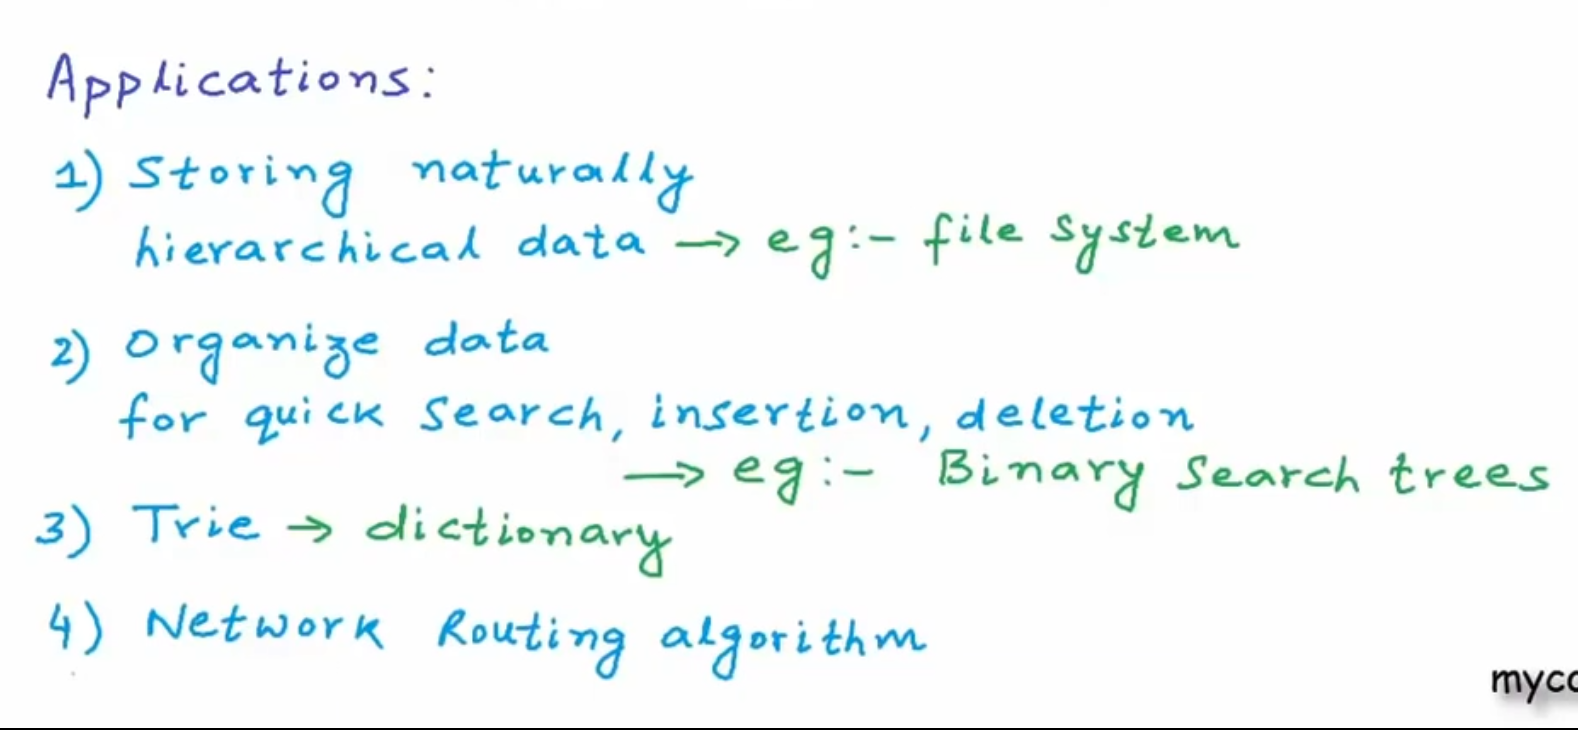 Applications:
1) Storing naturally
hierarchical data → eg:- file system
2) Organize data
for quick search, insertion, deletion
→ eg:- Binary Search trees
3) Trie → dictionary
4) Network Routing algorithm